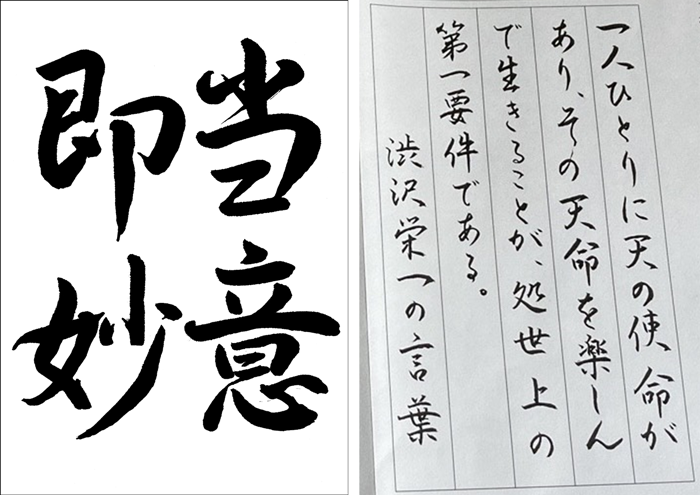 当意
即妙
一人ひとりに天の使命が
あり、その天命を楽しん
で生きることが、処世上の
第一要件である。
渋沢栄一の言葉